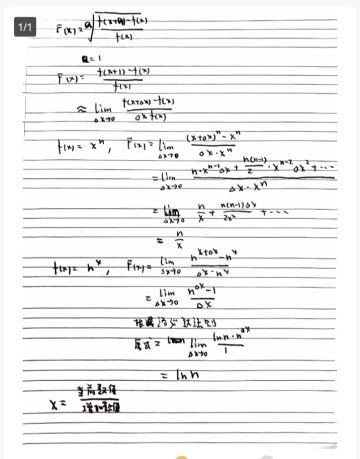 1/1
F(x) = ᵃ√((f(x+a)-f(x))/f(x))
a = 1
F(x) = (f(x+1)-f(x))/f(x)
≈ lim Δx→0 (f(x+Δx)-f(x))/(Δx f(x))
f(x) = xⁿ, F(x) = lim Δx→0 ((x+Δx)ⁿ - xⁿ)/(Δx·xⁿ)
= lim Δx→0 (n·xⁿ⁻¹Δx + n(n-1)/2·xⁿ⁻²Δx² + ···)/(Δx·xⁿ)
= lim Δx→0 n/x + n(n-1)Δx/2x² + ···
= n/x
f(x) = nˣ, F(x) = lim Δx→0 (nˣ⁺ᐃˣ - nˣ)/(Δx·nˣ)
= lim Δx→0 (nᐃˣ - 1)/Δx
根据洛必达法则
原式 = lim Δx→0 (ln n·nᐃˣ)/1
= ln n
x = 当前数值/增加数值